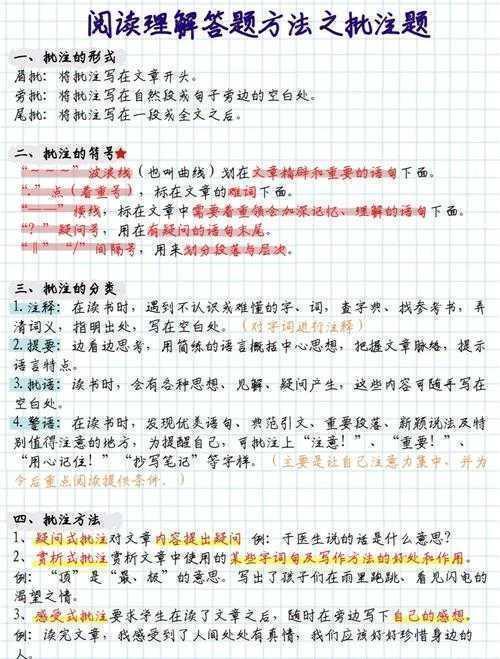 阅读理解答题方法之批注题
一、批注的形式
眉批：将批注写在文章开头。
旁批：将批注写在自然段或句子旁边的空白处。
尾批：将批注写在一段或全文之后。
二、批注的符号★
“～～～”波浪线（也叫曲线）划在文章精辟和重要的语句下面。
“.”点（着重号），标在文章的难词下面。
“——”横线，标在文章中需要着重领会加深记忆、理解的语句下面。
“？”疑问号，用在有疑问的语句末尾。
“‖”“/”间隔号，用来划分段落与层次。
三、批注的分类
1.注释：在读书时，遇到不认识或难懂的字、词，查字典、找参考书，弄
清词义，指明出处，写在空白处。（对字词进行注释）
2.提要：边看边思考，用简练的语言概括中心思想，把握文章脉络，提示
语言特点。
3.批语：读书时，会有各种思想、见解、疑问产生，这些内容可随手写在
空白处。
4.警语：在读书时，发现优美语句、典范引文、重要段落、新颖说法及特
别值得注意的地方，为提醒自己，可批注上“注意！”、“重要！”、
“用心记住！”“抄写笔记”等字样。（主要是让自己注意力集中、并为
今后重点阅读提供条件.）
四、批注方法
1、疑问式批注对文章内容提出疑问 例：于医生说的话是什么意思？
2、赏析式批注赏析文章中使用的某些字词句及写作方法的好处和作用。
例：“顶”是“最、极”的意思。写出了孩子们在雨里跑跳、看见闪电的
渴望之情。
3、感受式批注要求学生在读了文章之后，随时在旁边写下自己的感想。
例：读完文章，我感受到了人间处处有真情，我们应该好好珍惜身边的
人。